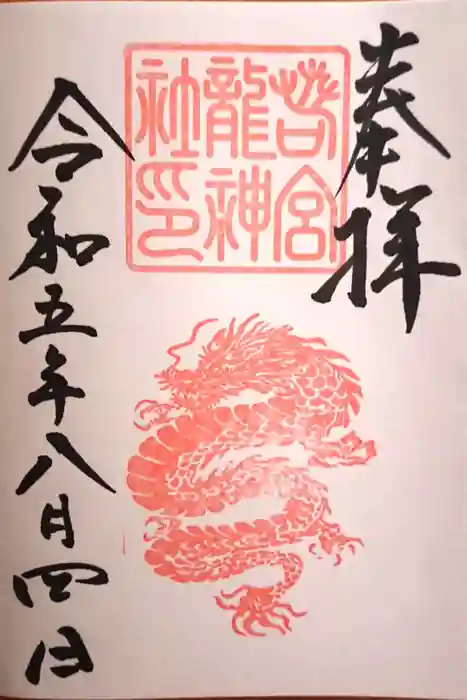 奉拝
若宮
龍神
社印
令和五年八月四日